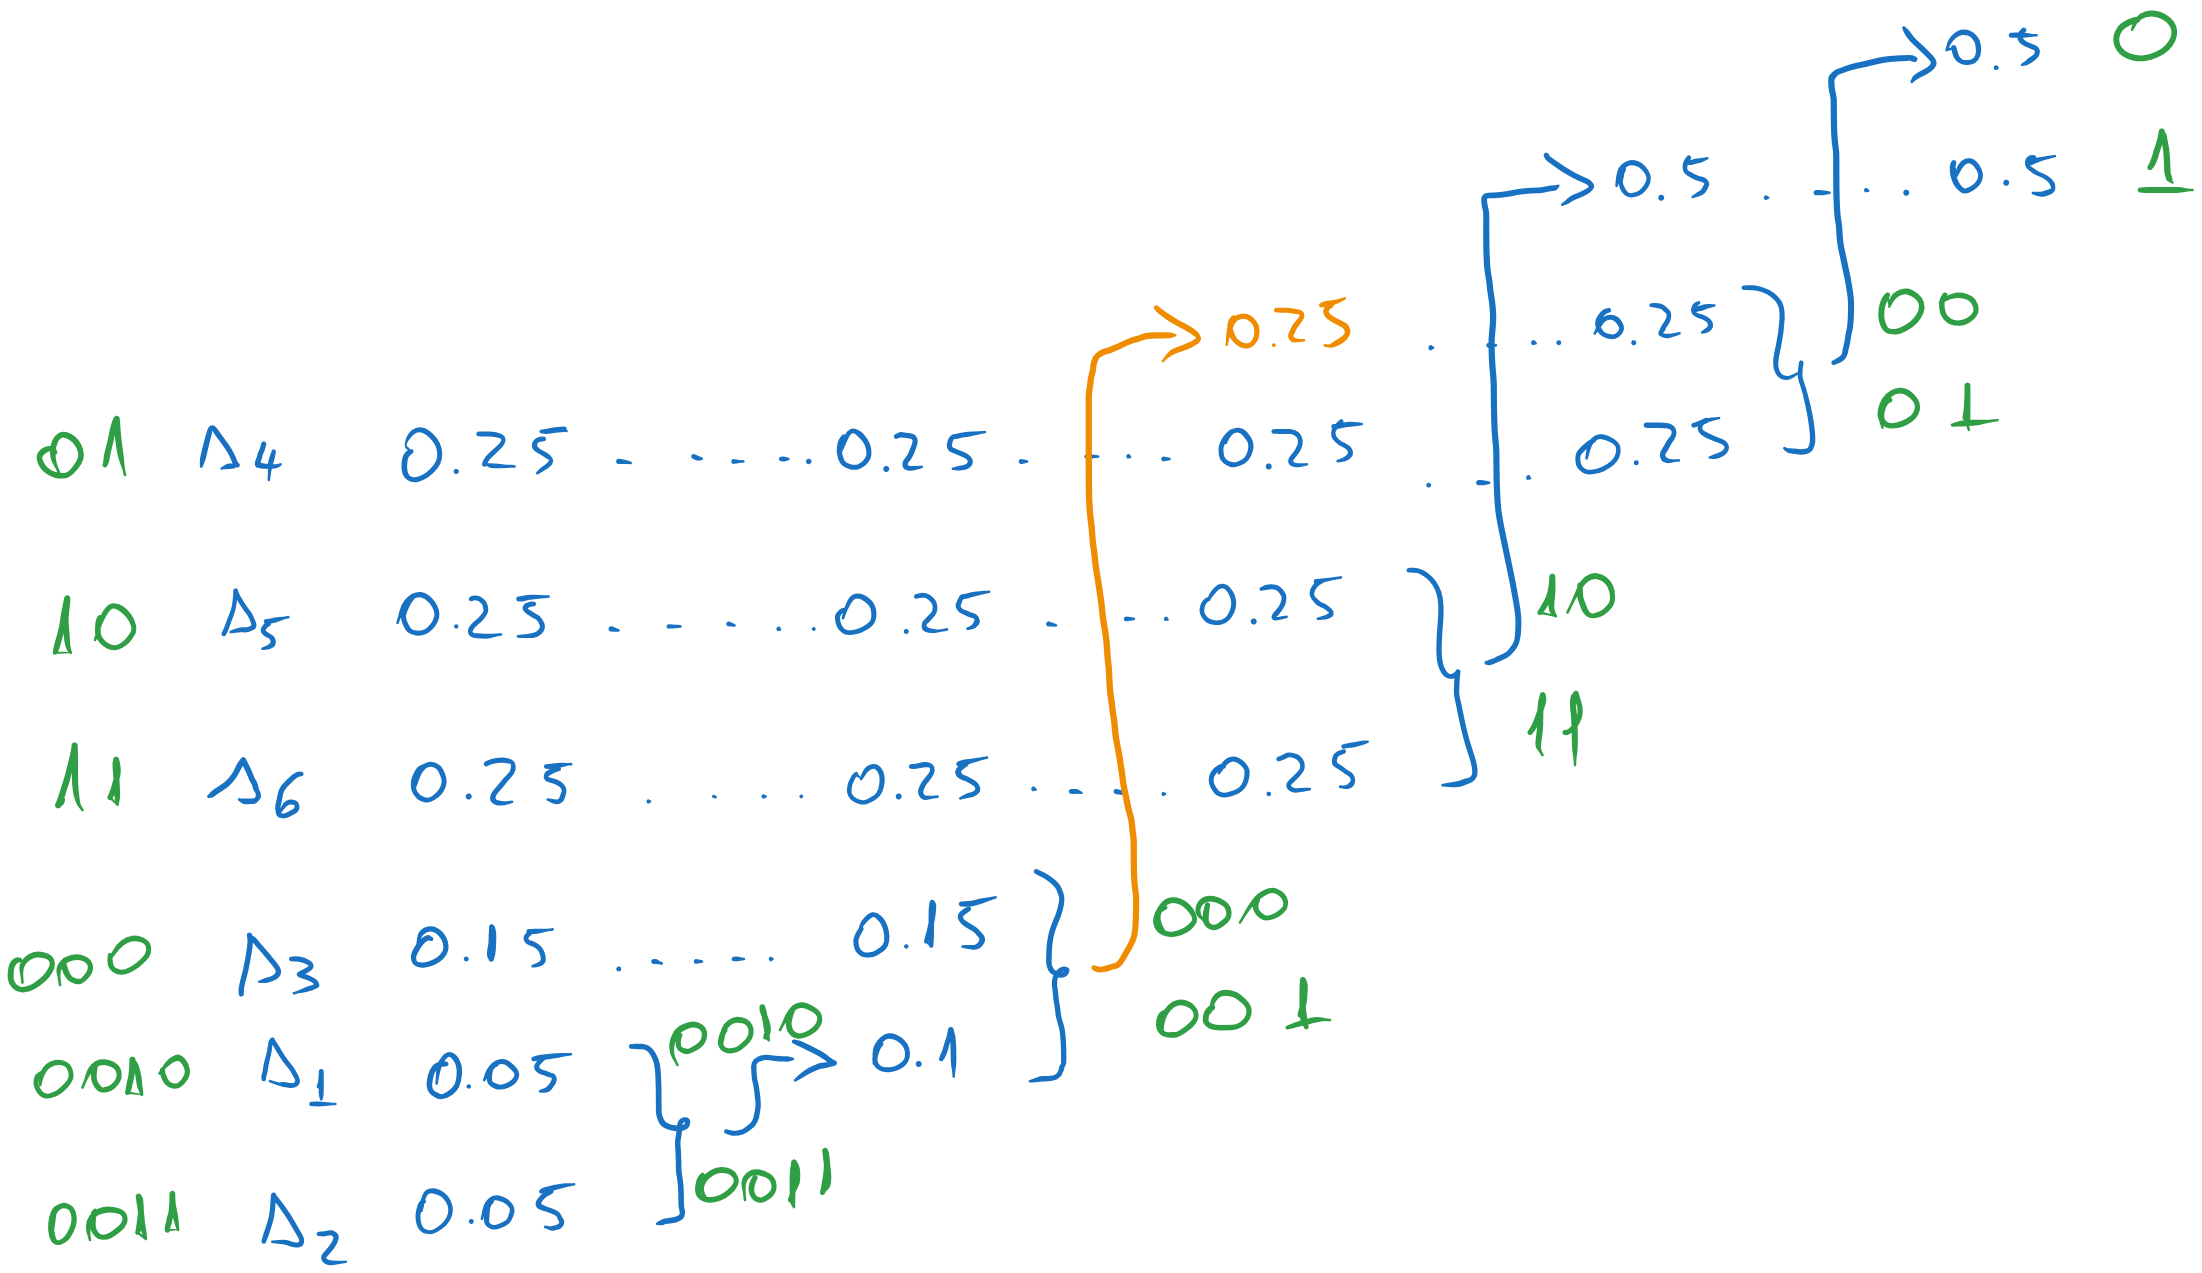 0.5 0
0.5 0.5 1
0.25 0.25 00
01 Δ4 0.25 0.25 0.25 0.25 01
10 Δ5 0.25 0.25 0.25 10
11 Δ6 0.25 0.25 0.25 11
000 Δ3 0.15 0.15 000
0010 001
0010 Δ1 0.05 0.1
0011 Δ2 0.05 0011